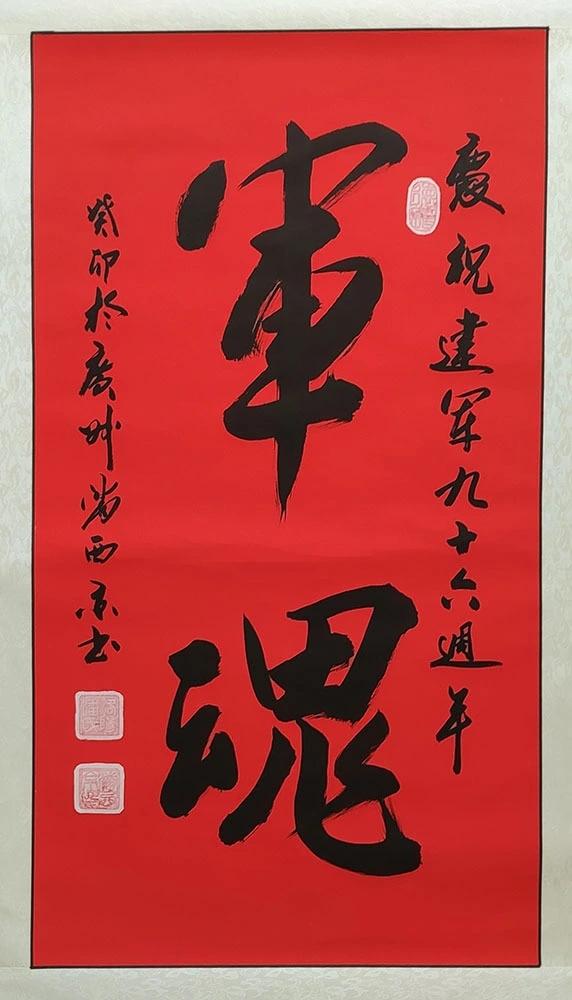 慶祝建軍九十六週年
軍魂
癸卯於廣州 西 書